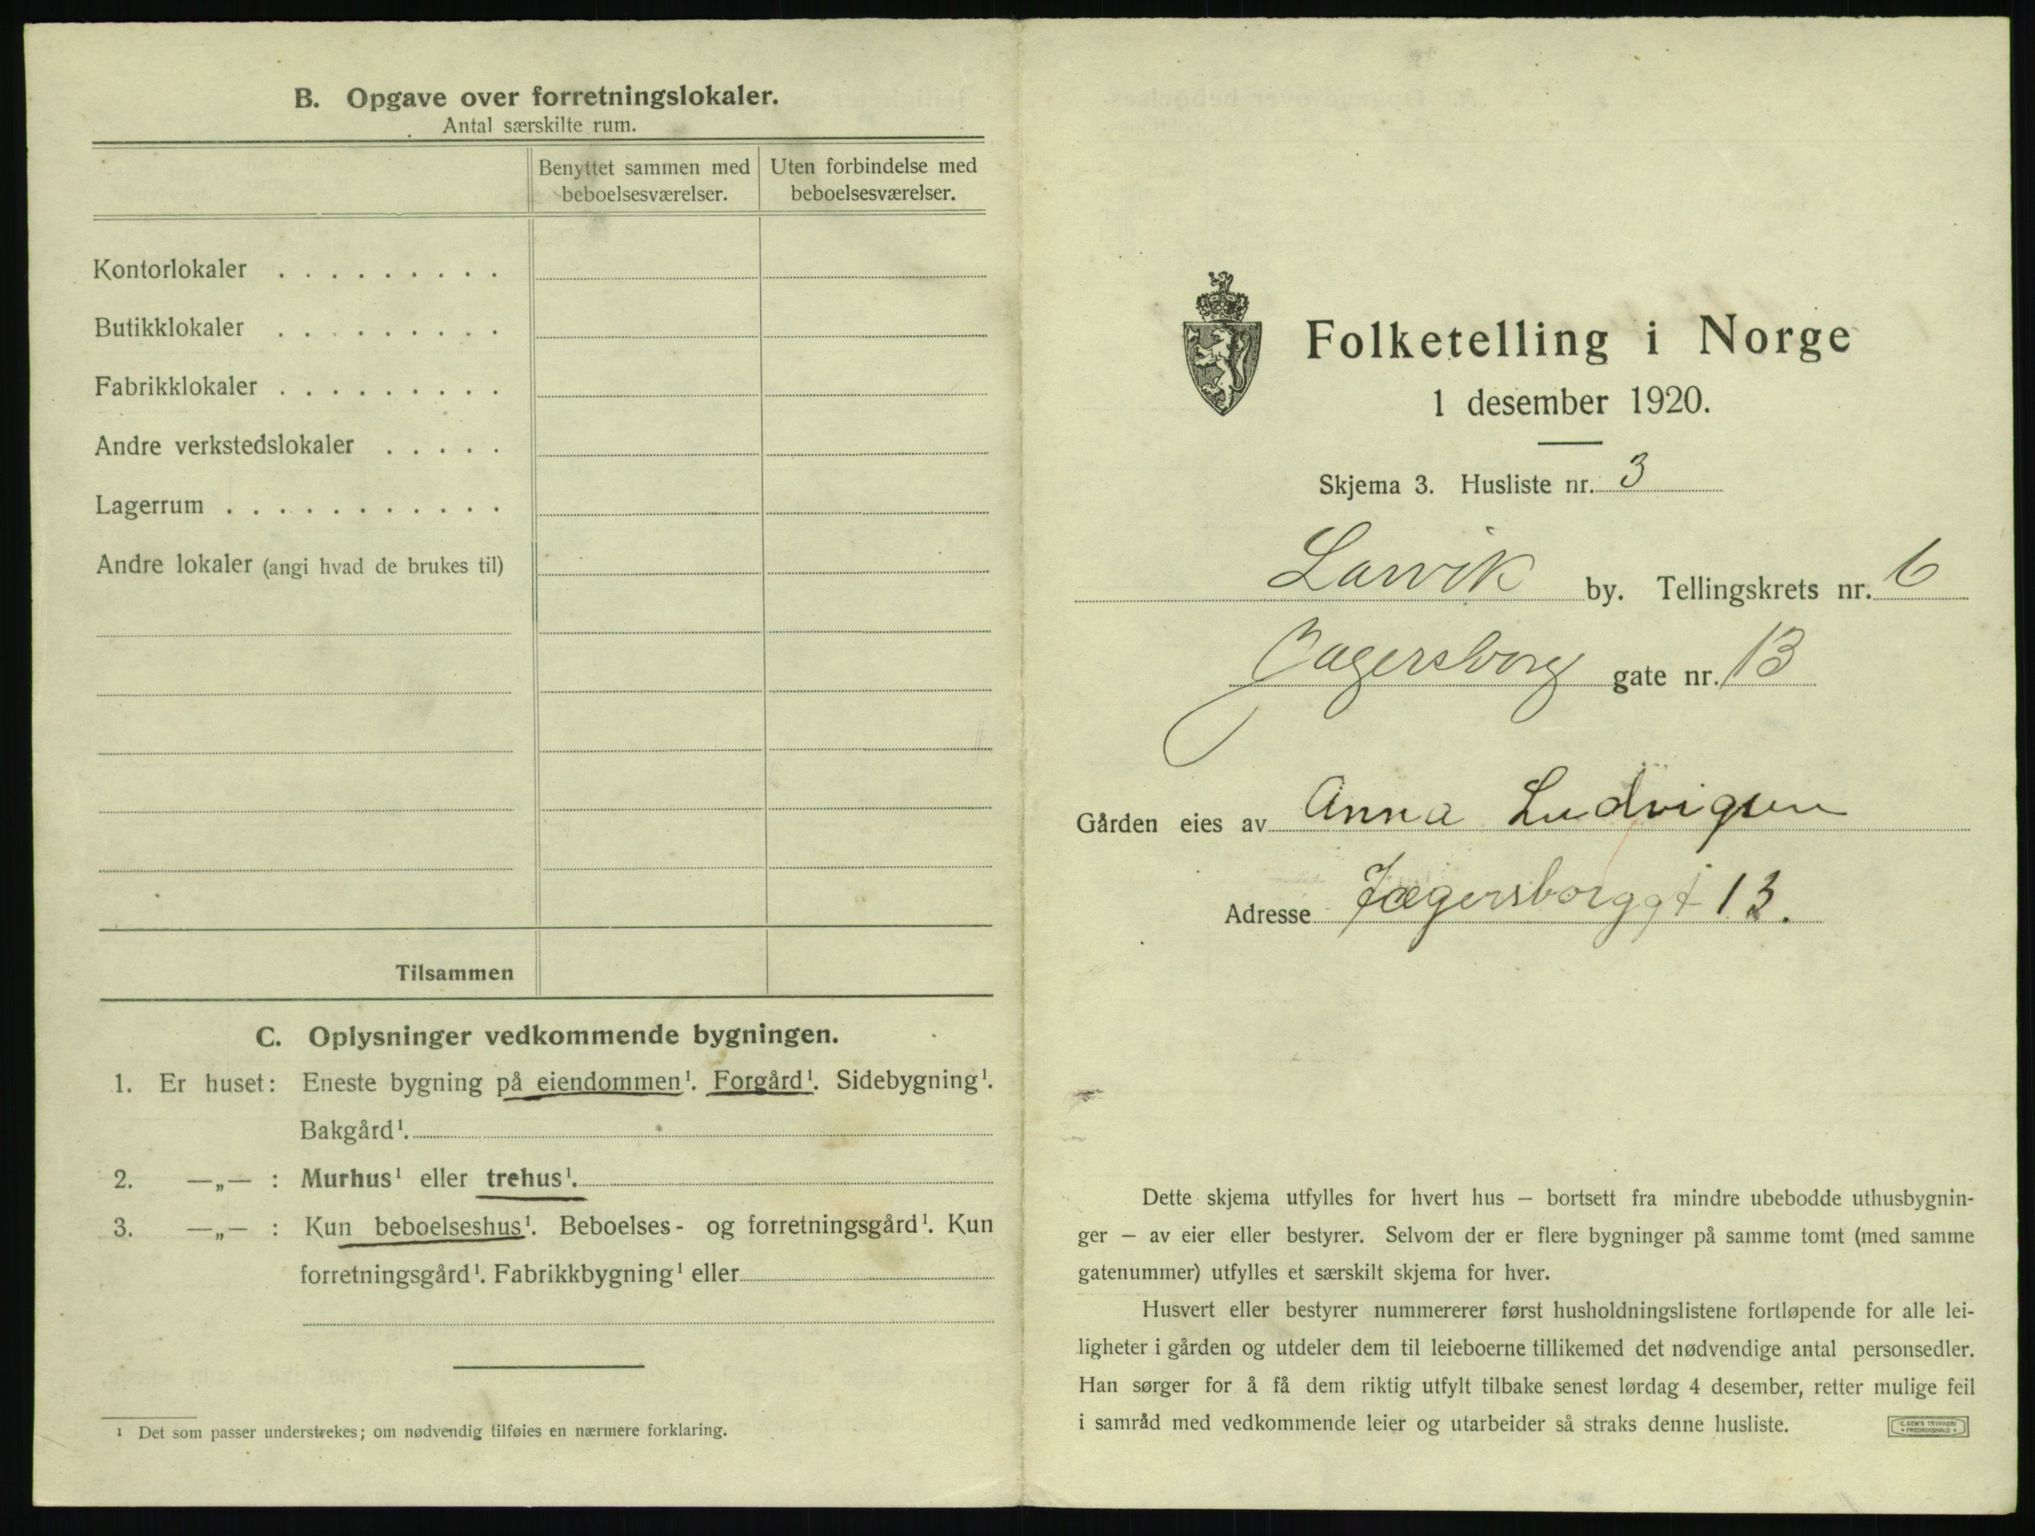 B. Opgave over forretningslokaler.
Antal særskilte rum.
Benyttet sammen med beboelsesværelser.
Uten forbindelse med beboelsesværelser.
Kontorlokaler . . . . . . . . .
Butikklokaler . . . . . . . . .
Fabrikklokaler . . . . . . . . .
Andre verkstedslokaler . . . . .
Lagerrum . . . . . . . . . . .
Andre lokaler (angi hvad de brukes til)
Tilsammen
C. Oplysninger vedkommende bygningen.
1. Er huset: Eneste bygning på eiendommen¹. Forgård¹. Sidebygning¹.
Bakgård¹.
2. —„— : Murhus¹ eller trehus¹.
3. —„— : Kun beboelseshus¹. Beboelses- og forretningsgård¹. Kun
forretningsgård¹. Fabrikkbygning¹ eller
¹ Det som passer understrekes; om nødvendig tilføies en nærmere forklaring.
Folketelling i Norge
1 desember 1920.
Skjema 3. Husliste nr. 3
Larvik by. Tellingskrets nr. 6
Jagersborg gate nr. 13
Gården eies av Anna Ludvigsen
Adresse Jægersborggt 13.
Dette skjema utfylles for hvert hus – bortsett fra mindre ubebodde uthusbygnin-
ger – av eier eller bestyrer. Selvom der er flere bygninger på samme tomt (med samme
gatenummer) utfylles et særskilt skjema for hver.
Husvert eller bestyrer nummererer først husholdningslistene fortløpende for alle lei-
ligheter i gården og utdeler dem til leieboerne tillikemed det nødvendige antal personsedler.
Han sørger for å få dem riktig utfylt tilbake senest lørdag 4 desember, retter mulige feil
i samråd med vedkommende leier og utarbeider så straks denne husliste.
E. SEM'S TRYKKERI
FREDRIKSHALD